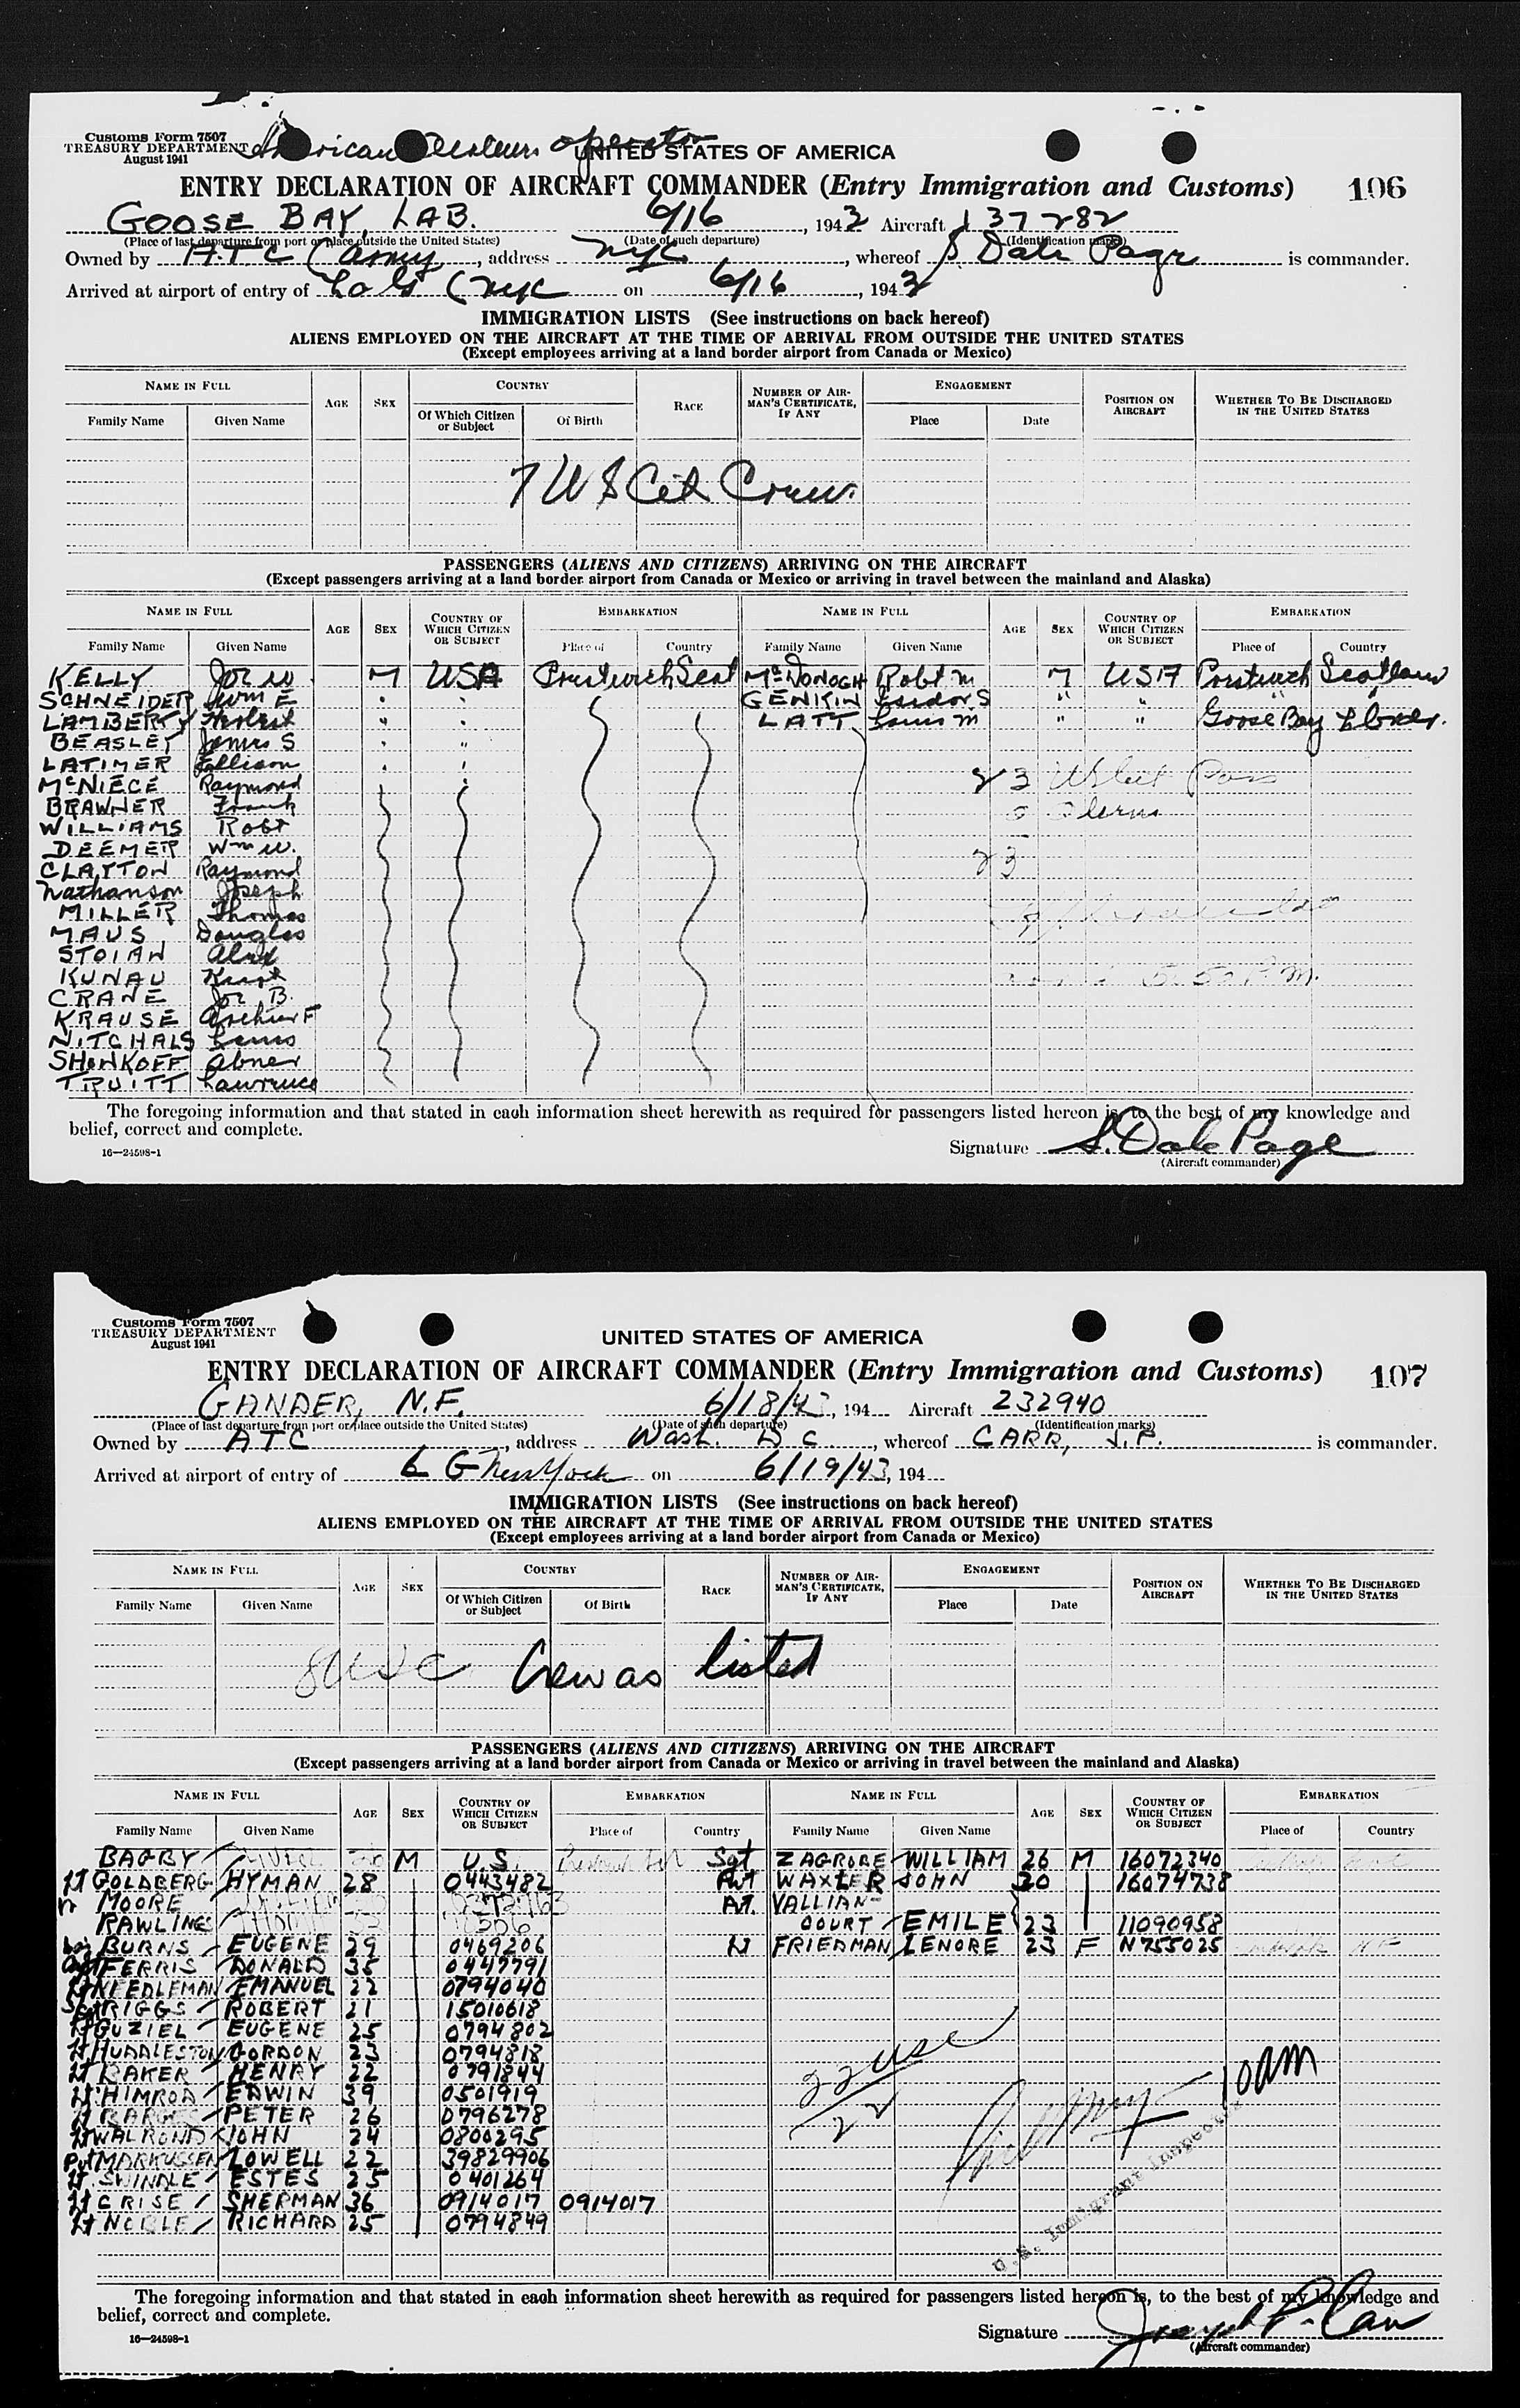 Customs Form 7507
TREASURY DEPARTMENT
August 1941
operator
UNITED STATES OF AMERICA
ENTRY DECLARATION OF AIRCRAFT COMMANDER (Entry Immigration and Customs) 106
GOOSE BAY, LAB. 6/16, 1943 Aircraft 137282
(Place of last departure from port or place outside the United States) (Date of such departure) (Identification marks)
Owned by ATC (Army, address NYC, whereof S Dale Page is commander.
Arrived at airport of entry of La G (NYC on 6/16, 1943
IMMIGRATION LISTS (See instructions on back hereof)
ALIENS EMPLOYED ON THE AIRCRAFT AT THE TIME OF ARRIVAL FROM OUTSIDE THE UNITED STATES
(Except employees arriving at a land border airport from Canada or Mexico)
NAME IN FULL AGE SEX COUNTRY RACE NUMBER OF AIRMAN'S CERTIFICATE, IF ANY ENGAGEMENT POSITION ON AIRCRAFT WHETHER TO BE DISCHARGED IN THE UNITED STATES
Family Name Given Name Of Which Citizen or Subject Of Birth Place Date
7 US Cit Crew
PASSENGERS (ALIENS AND CITIZENS) ARRIVING ON THE AIRCRAFT
(Except passengers arriving at a land border airport from Canada or Mexico or arriving in travel between the mainland and Alaska)
NAME IN FULL AGE SEX COUNTRY OF WHICH CITIZEN OR SUBJECT EMBARKATION NAME IN FULL AGE SEX COUNTRY OF WHICH CITIZEN OR SUBJECT EMBARKATION
Family Name Given Name Place of Country Family Name Given Name Place of Country
KELLY Joe W M USA Prestwich Scot McDONOGH Robt M M USA Prestwich Scotland
SCHNEIDER Wm E GENKIN Isador S " " "
LAMBERTY Herbert " " LATT Louis M " " Goose Bay
BEASLEY James S "
LATIMER Ellison
McNIECE Raymond 23 US Cit Pass
BRAWNER Frank 0 Aliens
WILLIAMS Robt
DEEMER Wm W. 23
CLAYTON Raymond
Nathanson Joseph
MILLER Thomas
MAUS Douglas
STOIAN Alex
KUNAU Knut P.M.
CRANE Joe B.
KRAUSE Archer F
NITCHALS Louis
SHONKOFF Abner
TRUITT Lawrence
The foregoing information and that stated in each information sheet herewith as required for passengers listed hereon is, to the best of my knowledge and
belief, correct and complete.
16—24598-1
Signature S. Dale Page
(Aircraft commander)
Customs Form 7507
TREASURY DEPARTMENT
August 1941
UNITED STATES OF AMERICA
ENTRY DECLARATION OF AIRCRAFT COMMANDER (Entry Immigration and Customs) 107
GANDER, N.F. 6/18/43, 194 Aircraft 232940
(Place of last departure from port or place outside the United States) (Date of such departure) (Identification marks)
Owned by ATC, address Wash. D C, whereof CARR, J.P. is commander.
Arrived at airport of entry of L G New York on 6/19/43, 194
IMMIGRATION LISTS (See instructions on back hereof)
ALIENS EMPLOYED ON THE AIRCRAFT AT THE TIME OF ARRIVAL FROM OUTSIDE THE UNITED STATES
(Except employees arriving at a land border airport from Canada or Mexico)
NAME IN FULL AGE SEX COUNTRY RACE NUMBER OF AIRMAN'S CERTIFICATE, IF ANY ENGAGEMENT POSITION ON AIRCRAFT WHETHER TO BE DISCHARGED IN THE UNITED STATES
Family Name Given Name Of Which Citizen or Subject Of Birth Place Date
8 USC Crew as listed
PASSENGERS (ALIENS AND CITIZENS) ARRIVING ON THE AIRCRAFT
(Except passengers arriving at a land border airport from Canada or Mexico or arriving in travel between the mainland and Alaska)
NAME IN FULL AGE SEX COUNTRY OF WHICH CITIZEN OR SUBJECT EMBARKATION NAME IN FULL AGE SEX COUNTRY OF WHICH CITIZEN OR SUBJECT EMBARKATION
Family Name Given Name Place of Country Family Name Given Name Place of Country
BAGBY M U.S. Sgt ZAGROBE WILLIAM 26 M 16072340
Lt GOLDBERG HYMAN 28 0443482 Pvt WAXLER JOHN 30 16074738
MOORE VALLIAN-
RAWLINGS COURT EMILE 23 11090958
BURNS EUGENE 29 0469206 Lt FRIEDMAN LENORE 23 F N755025
FERRIS DONALD 35 0447791
Lt NEEDLEMAN EMANUEL 22 0794040
Sgt RIGGS ROBERT 21 15010618
Lt GUZIEL EUGENE 25 0794802
Lt HUDDLESTON GORDON 23 0794818
Lt BAKER HENRY 22 0791844
Lt HIMROD EDWIN 39 0501919
Lt PETER 26 0796278
Lt WALROND JOHN 24 0800295
Pvt MARKUSSEN LOWELL 22 39829906
Lt SWINDLE ESTES 25 0401264
Lt CRISE SHERMAN 36 0914017 0914017
Lt NOBLE RICHARD 25 0794849
22 USC
22
10 AM
U.S. Immigrant Inspector
The foregoing information and that stated in each information sheet herewith as required for passengers listed hereon is, to the best of my knowledge and
belief, correct and complete.
16—24598-1
Signature Joseph P. Carr
(Aircraft commander)